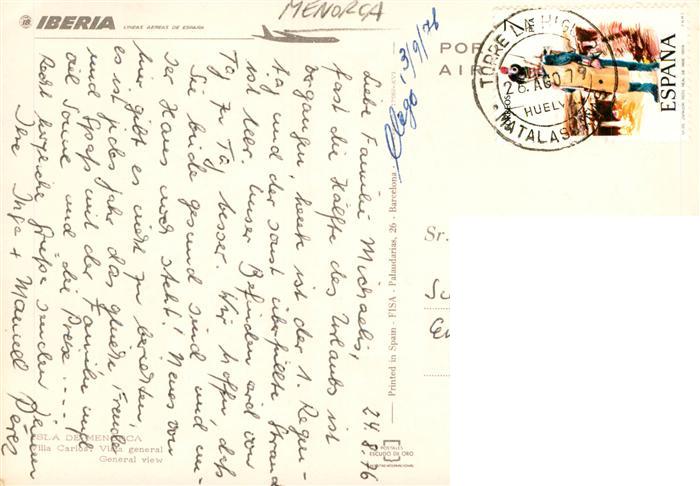 IBERIA LINEAS AEREAS DE ESPAÑA
MENORCA
POR
TORRE LA HIGU
26. AGO 79
HUELV
MATALAS
CORREOS
ESPAÑA
24.8.76
Liebe Familie Michaelis,
fast die Hälfte des Urlaubs ist
vergangen, heute ist der 1. Regen-
tag und der sonst überfüllte Strand
ist leer. Unser Befinden wird von
Tag zu Tag besser. Wir hoffen, daß
Sie beide gesund sind und un-
ser Haus noch steht! Neues von
hier gibt es nicht zu berichten,
es ist jedes Jahr das gleiche, Freude
und Spaß mit der Familie und
viel Sonne und die Preise....
Recht herzliche Grüße senden Ihnen
Ihre Inge + Manuel Perez
llegó 13/9/76
Printed in Spain - FISA - Palaudarias, 26 - Barcelona
Sr.
ISLA DE MENORCA
Villa Carlos. Vista general
General view
POSTALES
ESCUDO DE ORO